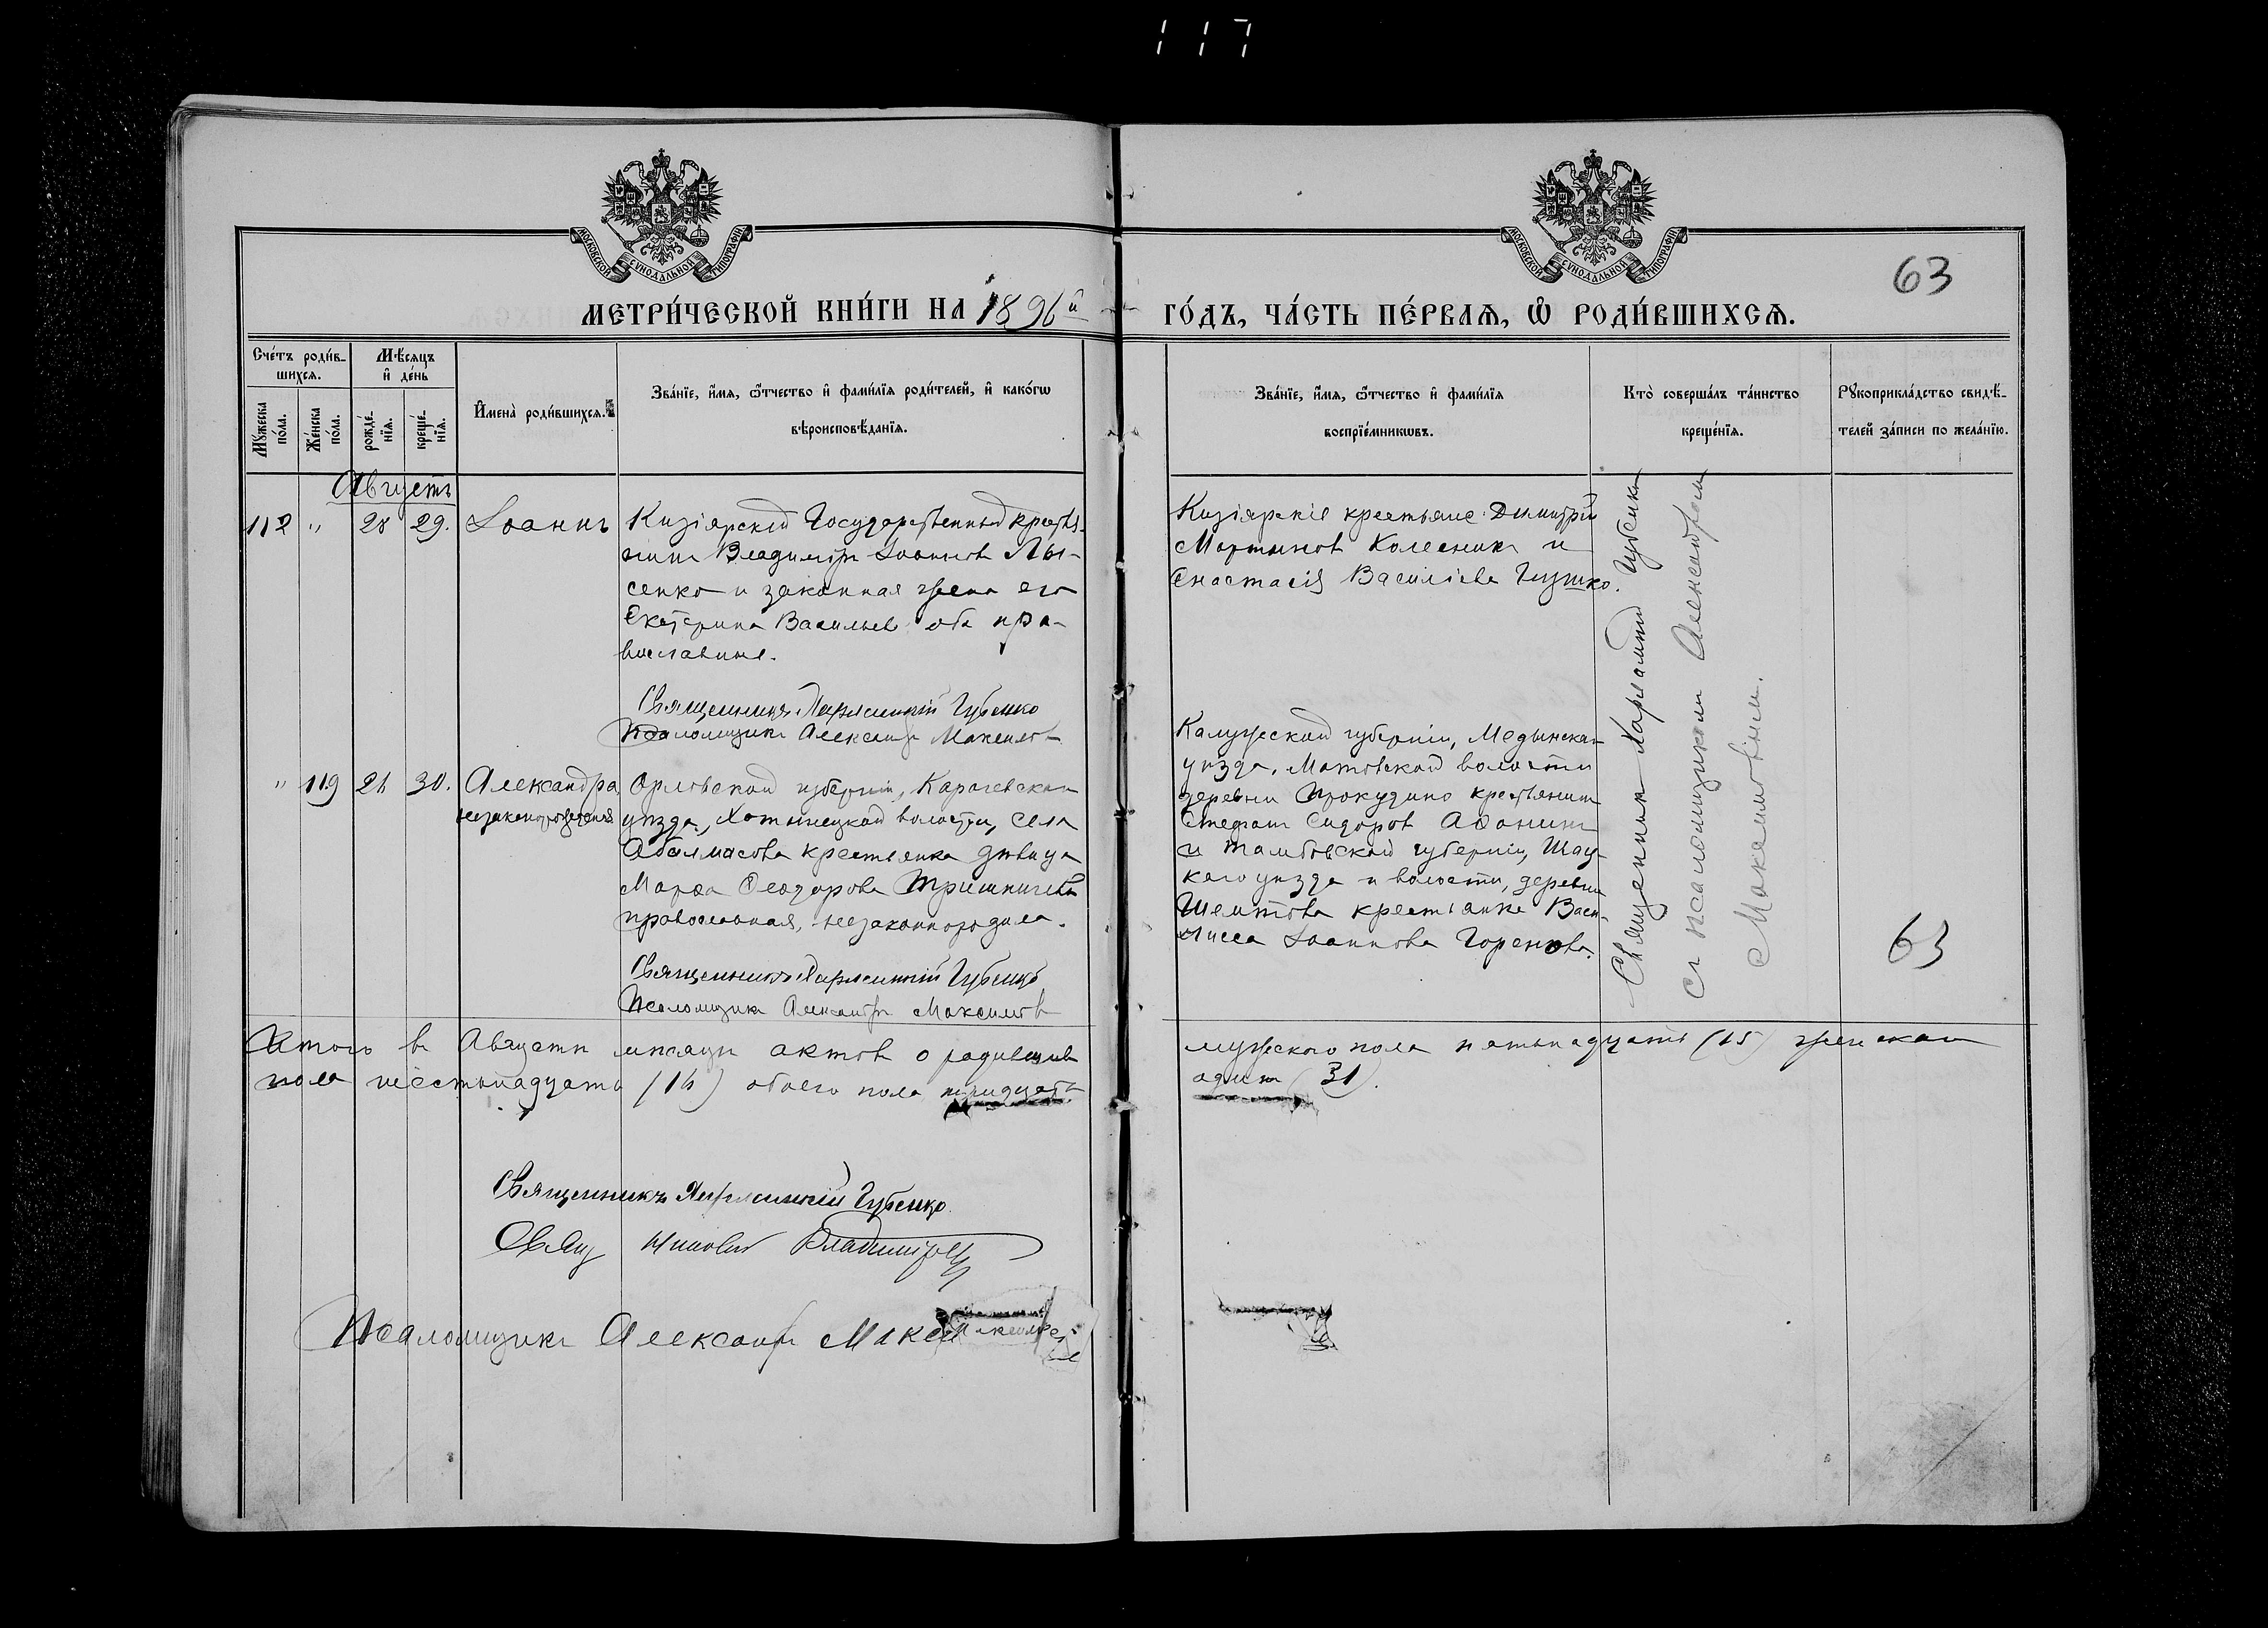 117
МОСКОВСКОЙ СУНОДАЛЬНОЙ ТИПОГРАФІИ
МОСКОВСКОЙ СУНОДАЛЬНОЙ ТИПОГРАФІИ
63
МЕТРИ́ЧЕСКОЙ КНИ́ГИ НА 1896й ГО́ДЪ, ЧА́СТЬ ПЕ́РВАѦ, Ѡ РОДИ́ВШИХСѦ.
Сче́тъ роди́в-
шихсѧ.
Мѣ́сѧцъ
и де́нь
Мꙋ́жеска
по́ла.
Же́нска
по́ла.
рожде́-
нїѧ.
креще́-
нїѧ.
Имена̀ роди́вшихсѧ.
Зва́нїе, и́мѧ, ѻ́тчество и фами́лїѧ роди́телей, и како́гѡ
вѣроисповѣ́данїѧ.
Зва́нїе, и́мѧ, ѻ́тчество и фами́лїѧ
воспрїе́мникѡвъ.
Кто̀ соверша́лъ та́инство
креще́нїѧ.
Рꙋкоприкла́дство свидѣ́-
телей за́писи по жела́нїю.
Августъ
112 " 28 29. Іоаннъ
Кизіярскій Государственный кресть-
янинъ Владиміръ Іоанновъ Лы-
сенко и законная жена его
Екатерина Васильев оба пра-
вославные.
Священникъ Харлампій Губенко
Псаломщикъ Александръ Максимов
Кизіярскіе крестьяне Димитрій
Мартыновъ Колесникъ и
Анастасія Васильева Глушко.
Священникъ Харлампій Губенко
съ псаломщикомъ Александромъ
Максимовымъ.
" 119 26 30. Александра
незаконорожденная
Орловской губерніи, Карачевскаго
уѣзда, Хотынецкой волости, села
Абалмасова крестьянка дѣвица
Марѳа Ѳеодорова
православная, незаконнородила.
Священникъ Харлампій Губенко
Псаломщикъ Александръ Максимовъ
Калужской губерніи, Медынскаго
уѣзда, Матовской волости
деревни Прокудино крестьянинъ
Стефанъ Сидоровъ Аѳонинъ
и Тамбовской губерніи, Шац-
каго уѣзда и волости, деревни
крестьянка Васи-
лисса Іоаннова Горенова.
63
Итого въ Августѣ мѣсяцѣ актовъ о родившихъ мужескаго пола пятьнадцать (15) женскаго
пола шестьнадцать (16) обоего пола тридцать одинъ (31).
Священникъ Харлампій Губенко
Свящ Владиміръ
Псаломщикъ Александръ Макси